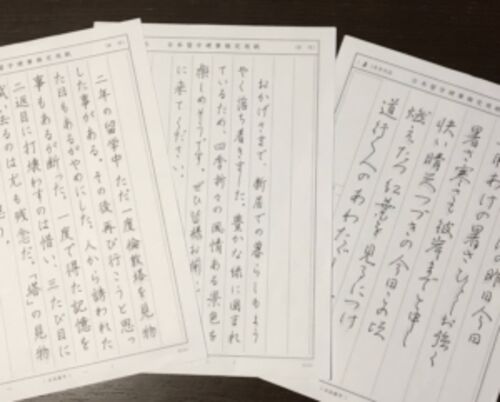 昨日今日
暑さ寒さも彼岸までと申し
快い晴天つづきの今日この頃
燃えたつ紅葉を見るにつけ
道行く人のあわただ
おかげさまで、新居での暮らしもよう
やく落ち着きました。豊かな緑に囲まれ
ているため、四季折々の風情ある景色を
楽しめそうです。ぜひ皆様お
に来てください。
二年の留学中ただ一度倫敦塔を見物
した事がある。その後再び行こうと思っ
た日もあるがやめにした。人から誘われた
事もあるが断った。一度で得た記憶を
二返目に打壊わすのは惜い、三たび目に
拭い去るのは尤も残念だ。「塔」の見物
思う。